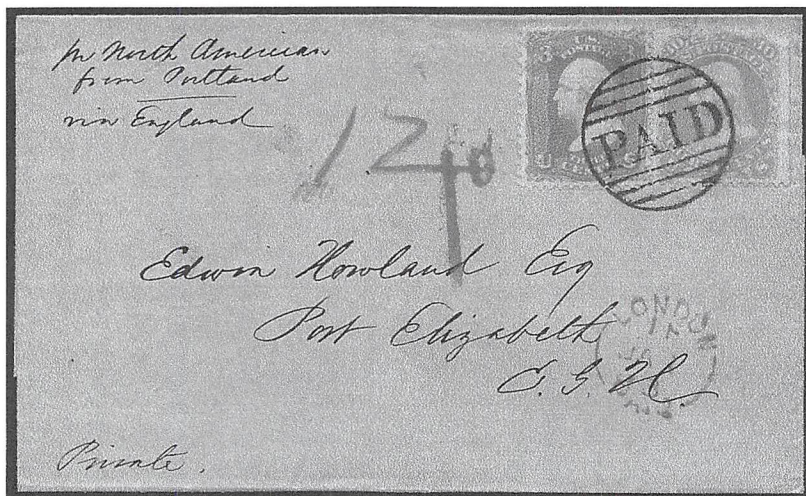 pr North American
from Portland
via England
12
PAID
U.S.
POSTAGE
Edwin Howland Esq
Port Elizabeth
C. G. H.
LONDON
Private.